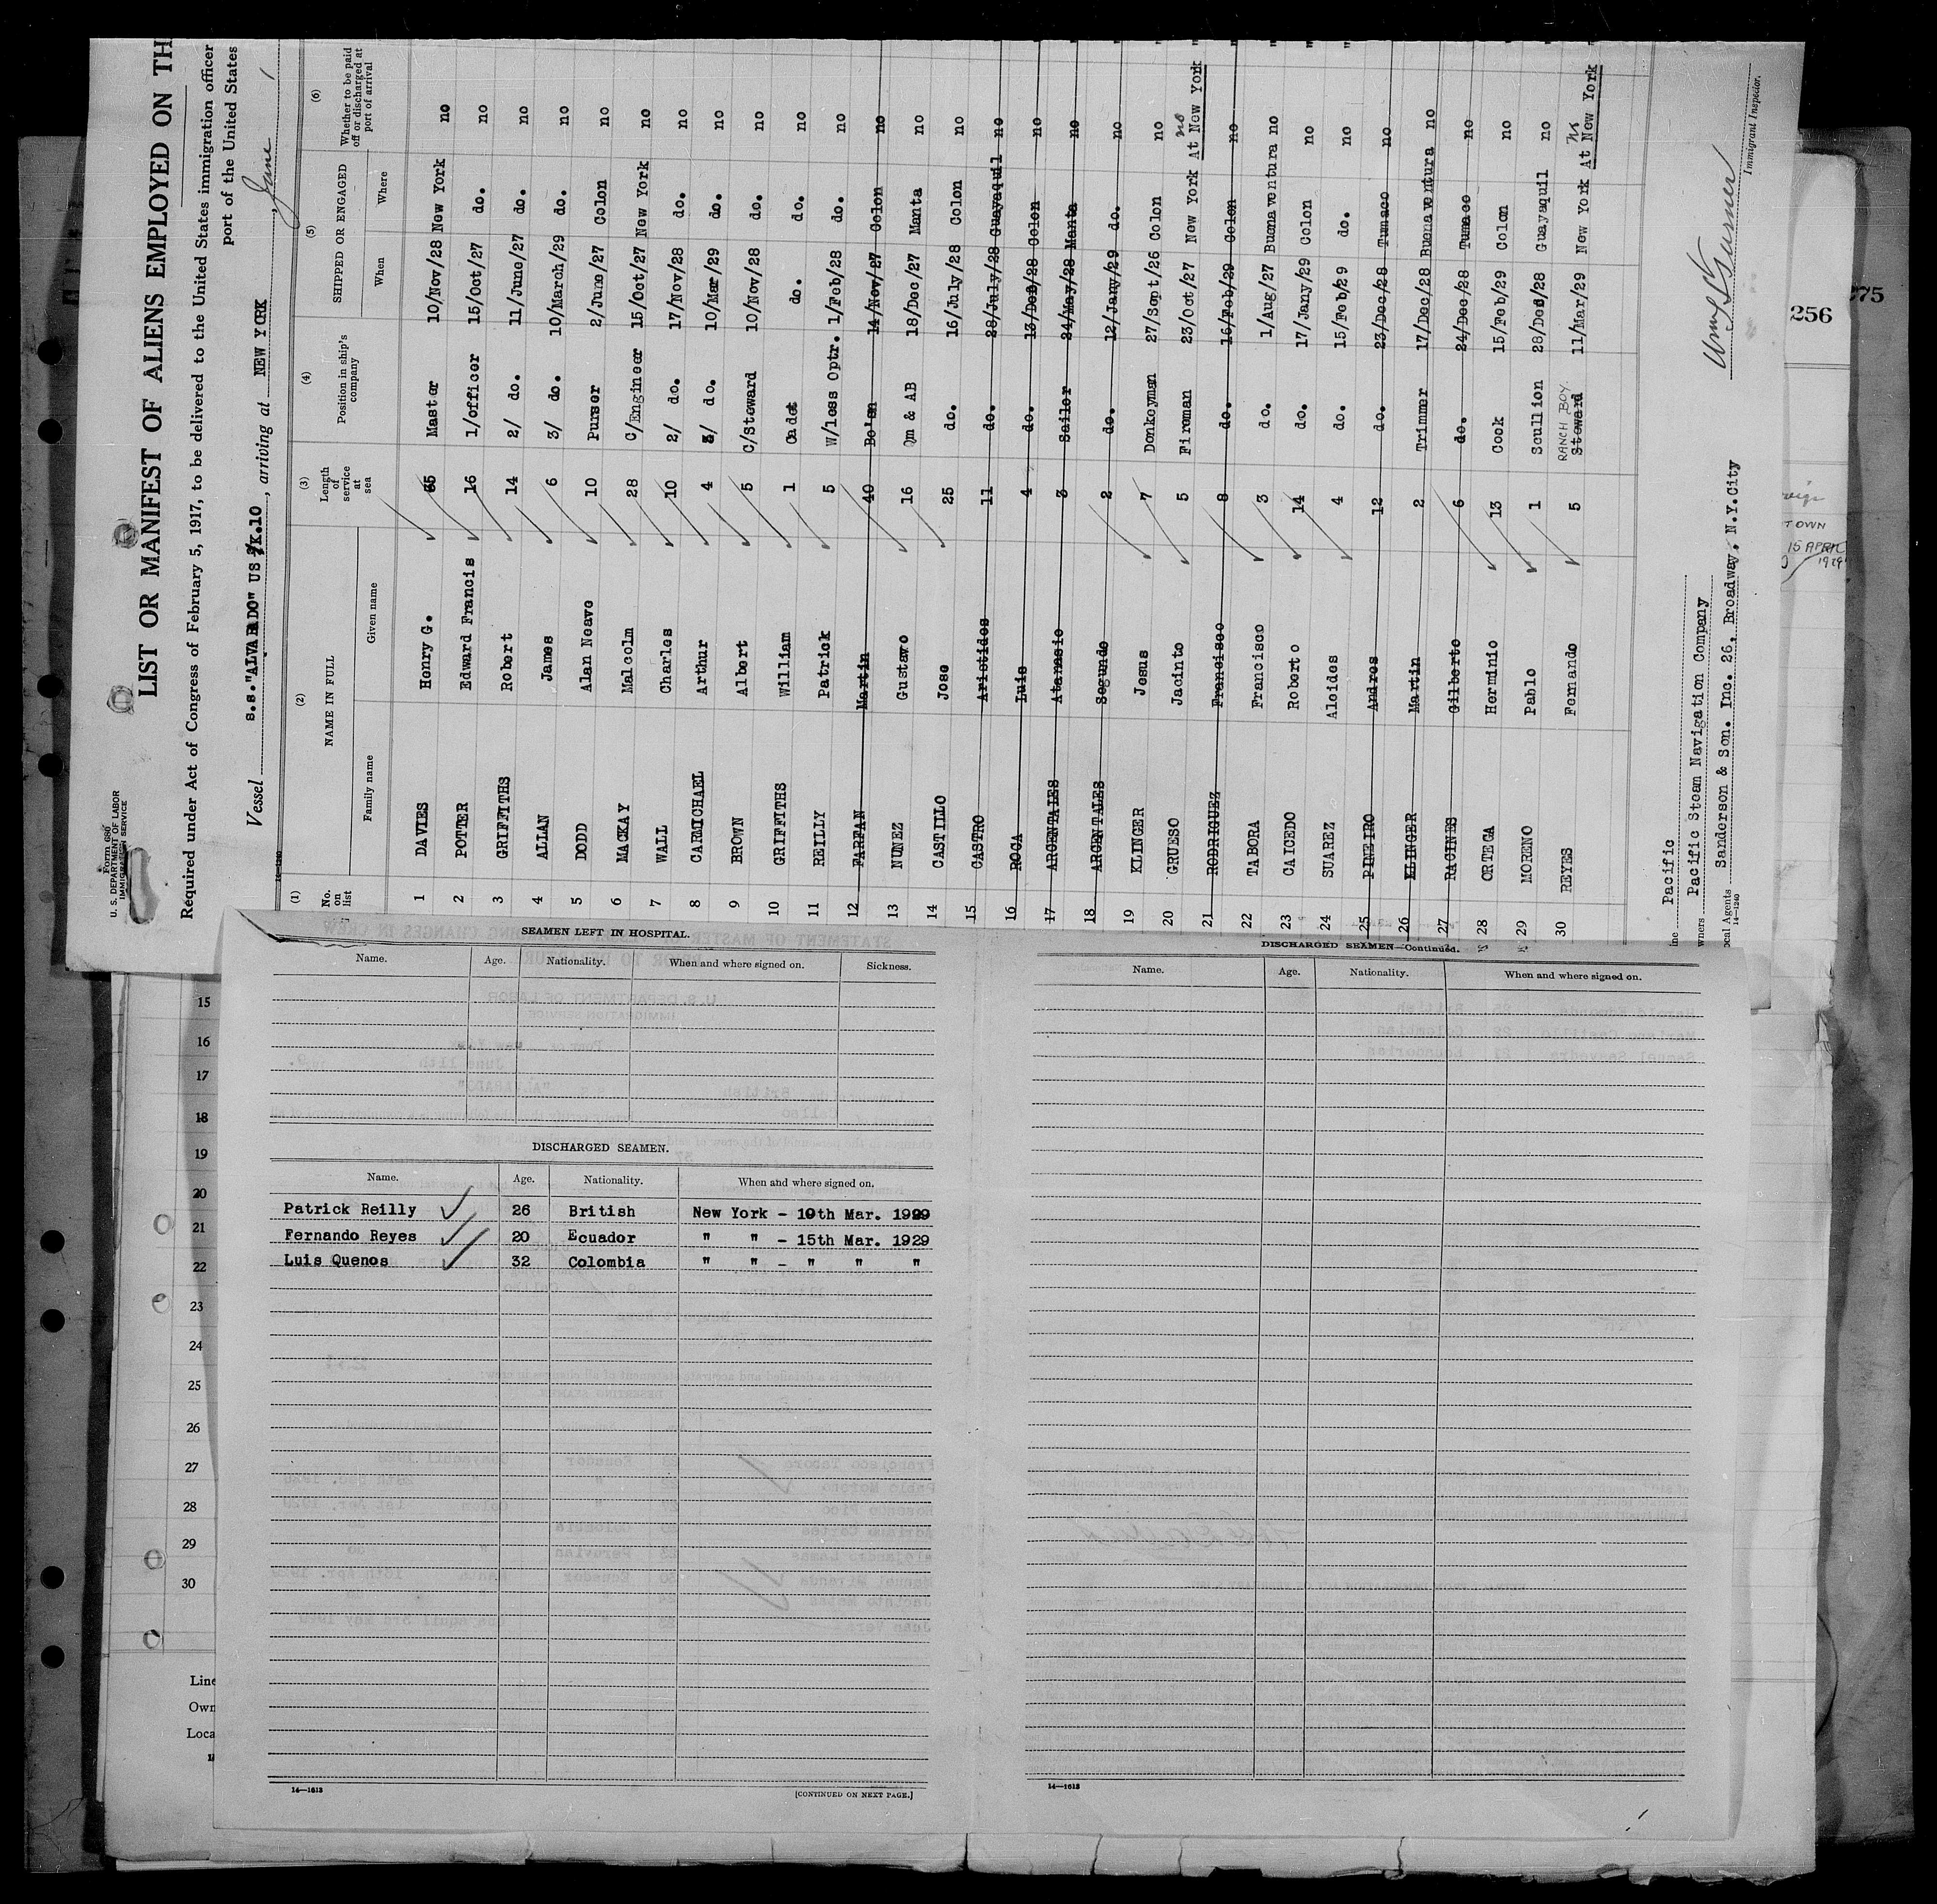 Form 680
U. S. DEPARTMENT OF LABOR
IMMIGRATION SERVICE
LIST OR MANIFEST OF ALIENS EMPLOYED ON TH
Required under Act of Congress of February 5, 1917, to be delivered to the United States immigration officer
port of the United States
Vessel s.s."ALVARADO" , arriving at NEW YORK , June
(1) (2) (3) (4) (5) (6)
No. on list NAME IN FULL Length of service at sea Position in ship's company SHIPPED OR ENGAGED Whether to be paid off or discharged at port of arrival
Family name Given name When Where
1 DAVIES Henry G. 35 Master 10/Nov/28 New York no
2 POTTER Edward Francis 16 1/officer 15/Oct/27 do. no
3 GRIFFITHS Robert 14 2/ do. 11/June/27 do. no
4 ALLAN James 6 3/ do. 10/March/29 do. no
5 DODD Alan Neave 10 Purser 2/June/27 Colon no
6 MACKAY Malcolm 28 C/Engineer 15/Oct/27 New York no
7 WALL Charles 10 2/ do. 17/Nov/28 do. no
8 CARMICHAEL Arthur 4 3/ do. 10/Mar/29 do. no
9 BROWN Albert 5 C/Steward 10/Nov/28 do. no
10 GRIFFITHS William 1 Cadet do. do. no
11 REILLY Patrick 5 W/less Optr. 1/Feb/28 do. no
12 FARFAN Martin 40 Bo'sn 14/Nov/27 Colon no
13 NUNEZ Gustavo 16 Qm & AB 18/Dec/27 Manta no
14 CASTILLO Jose 25 do. 16/July/28 Colon no
15 CASTRO Aristides 11 do. 28/July/28 Guayaquil no
16 ROCA Luis 4 do. 13/Dec/28 Colon no
17 ARGENTALES Atanasio 3 Sailor 24/May/28 Manta no
18 ARGENTALES Segundo 2 do. 12/Jany/29 do. no
19 KLINGER Jesus 7 Donkeyman 27/Sept/26 Colon no
20 GRUESO Jacinto 5 Fireman 23/Oct/27 New York At New York no
21 RODRIGUEZ Francisco 8 do. 16/Feb/29 Colon no
22 TABORA Francisco 3 do. 1/Aug/27 Buenaventura no
23 CAICEDO Roberto 14 do. 17/Jany/29 Colon no
24 SUAREZ Alcides 4 do. 15/Feb/29 do. no
25 PINEIRO Andres 12 do. 23/Dec/28 Tumaco no
26 KLINGER Martin 2 Trimmer 17/Dec/28 Buenaventura no
27 RACINES Gilberto 6 do. 24/Dec/28 Tumaco no
28 ORTEGA Herminio 13 Cook 15/Feb/29 Colon no
29 MORENO Pablo 1 Scullion 28/Dec/28 Guayaquil no
30 REYES Fernando 5 RANCH BOY Steward 11/Mar/29 New York At New York no
ine Pacific
wners Pacific Steam Navigation Company
ocal Agents Sanderson & Son. Inc. 26, Broadway. N.Y.City
14—1240
Immigrant Inspector.
256
275
TOWN
15 APRIL
1929
15
16
17
18
19
20
21
22
23
24
25
26
27
28
29
30
Line
Own
Loca
SEAMEN LEFT IN HOSPITAL.
Name. Age. Nationality. When and where signed on. Sickness.
DISCHARGED SEAMEN.
Name. Age. Nationality. When and where signed on.
Patrick Reilly 26 British New York - 10th Mar. 1929
Fernando Reyes 20 Ecuador " " - 15th Mar. 1929
Luis Quenos 32 Colombia " " - " " "
14—1613
[CONTINUED ON NEXT PAGE.]
DISCHARGED SEAMEN—Continued.
Name. Age. Nationality. When and where signed on.
14—1613